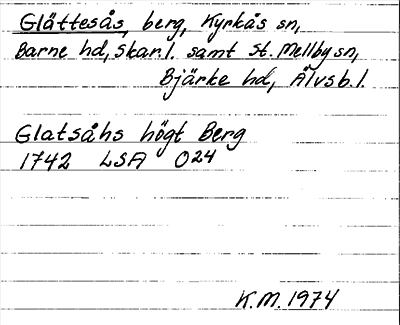 Glättesås, berg, Kyrkås sn,
Barne hd, Skar.l. samt St. Mellby sn,
Bjärke hd, Älvsb.l.
Glatsåhs högt Berg
1742 LSA O24
K.M. 1974